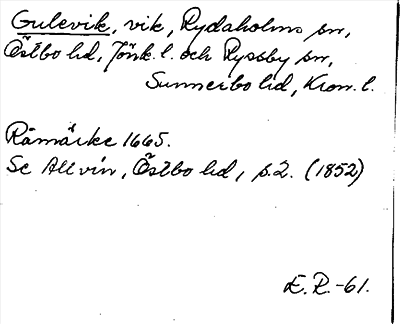 Gulevik, vik, Rydaholms sn,
Östbo hd, Jönk. l. och Ryssby sn,
Sunnerbo hd, Kron. l.
Råmärke 1665.
Se Allvin, Östbo hd, s. 2. (1852)
E. R. -61.